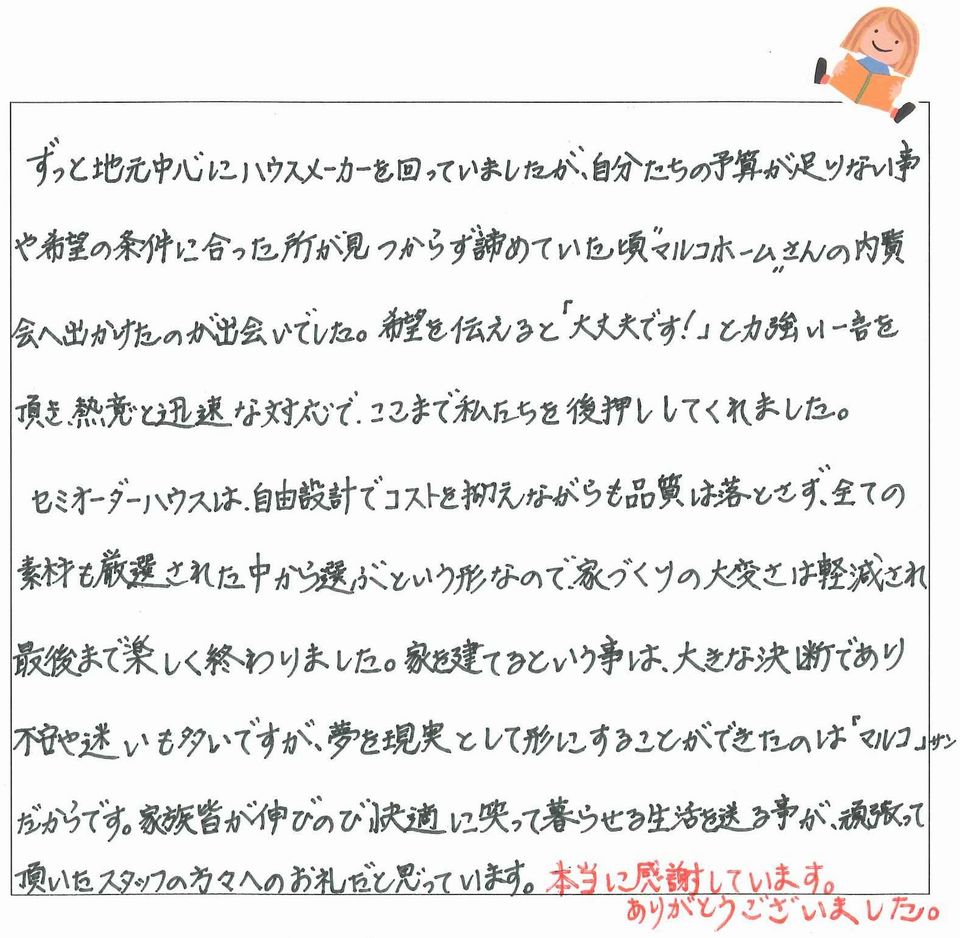 ずっと地元中心にハウスメーカーを回っていましたが、自分たちの予算が足りない事
や希望の条件に合った所が見つからず諦めていた頃“マルコホーム”さんの内覧
会へ出かけたのが出会いでした。希望を伝えると「大丈夫です!」と力強い一言を
頂き、熱意と迅速な対応で、ここまで私たちを後押ししてくれました。
セミオーダーハウスは、自由設計でコストを抑えながらも品質は落とさず、全ての
素材も厳選された中から選ぶという形なので、家づくりの大変さは軽減され
最後まで楽しく終わりました。家を建てるという事は、大きな決断であり
不安や迷いも多いですが、夢を現実として形にすることができたのは「マルコ」サン
だからです。家族皆が伸びのび快適に笑って暮らせる生活を送る事が、頑張って
頂いたスタッフの方々へのお礼だと思っています。本当に感謝しています。
ありがとうございました。